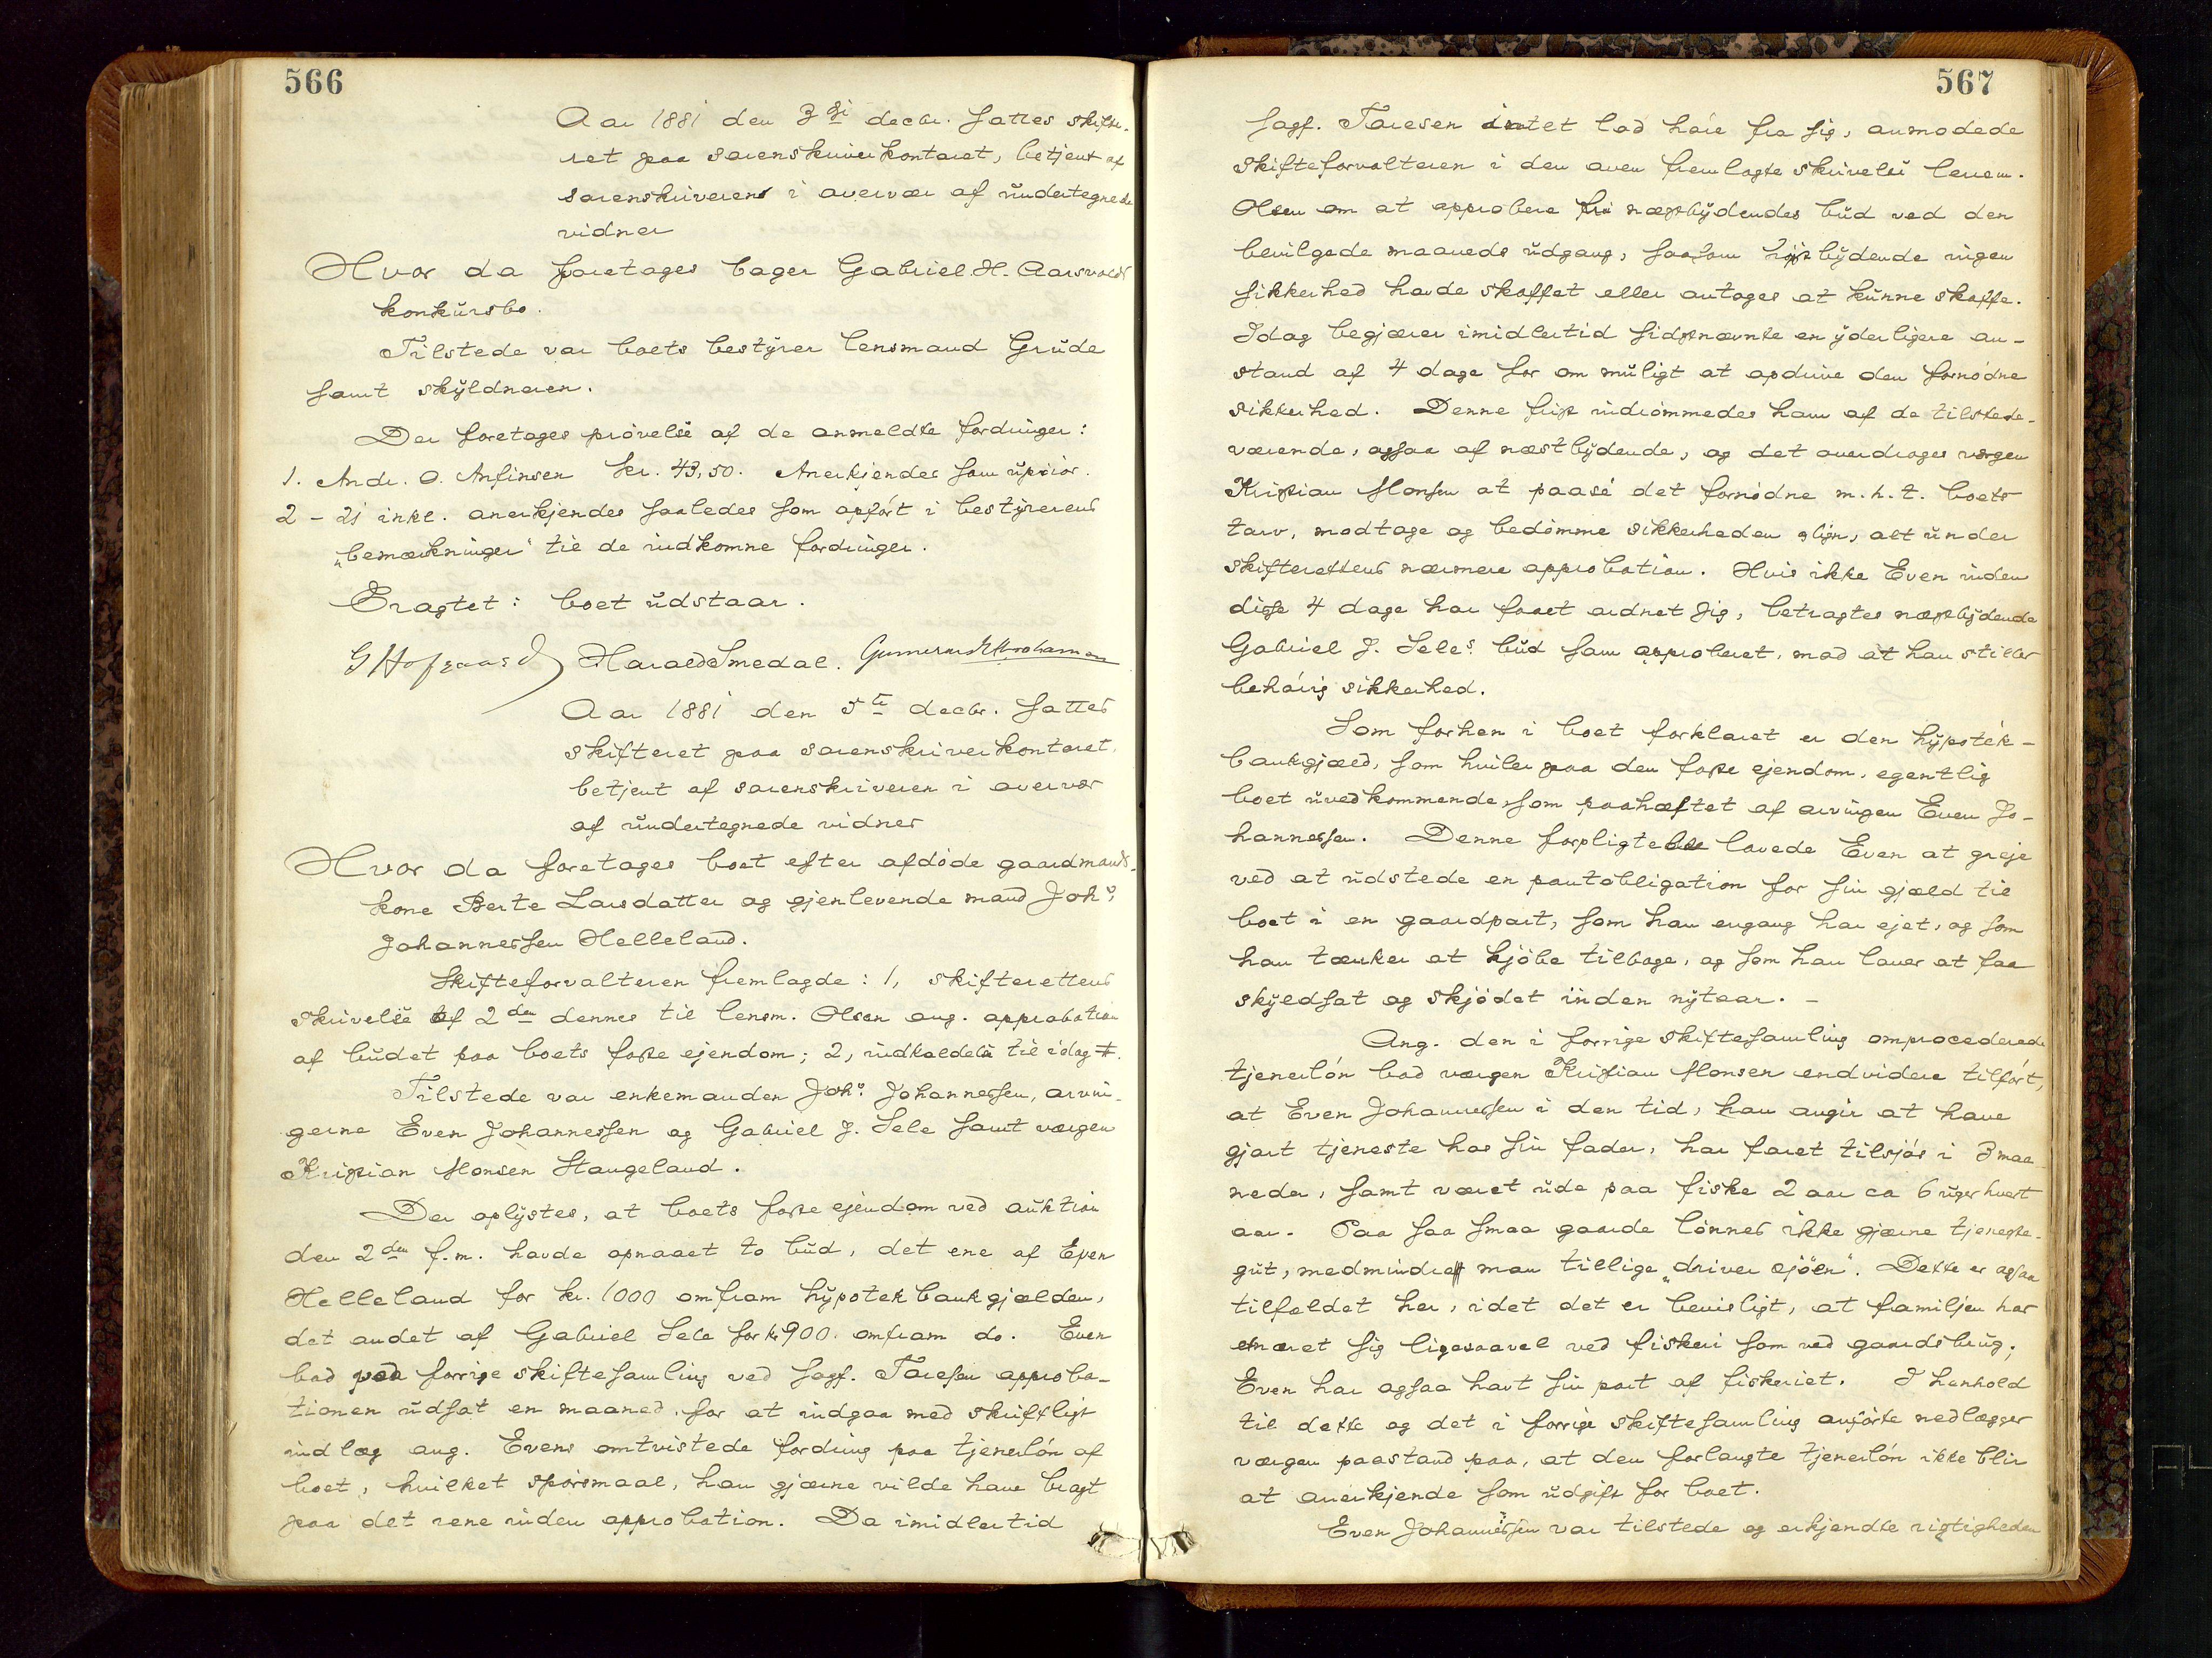 566
Aar 1881 den 3di decbr. sattes skifte-
ret paa sorenskriverkontoret, betjent af
sorenskriverens i overvær af undertegnede
vidner
Hvor da foretages bager Gabriel H. Aarsvolds
konkursbo.
Tilstede var boets bestyrer lensmand Grude
samt skyldneren.
Der foretages prøvelse af de anmeldte fordringer:
1. Andr. O. Anfinsen kr. 43,50. Anerkjendes som uprior.
2 - 21 inkl. anerkjendes saaledes som opført i bestyrerens
„bemærkninger" til de indkomne fordringer.
Eragtet: boet udstaar.
G Hofgaard Harald Smedal.
Aar 1881 den 5te decbr. sattes
skifteret paa sorenskriverkontoret,
betjent af sorenskriveren i overvær
af undertegnede vidner
Hvor da foretages boet efter afdøde gaardmands-
kone Berte Larsdatter og gjenlevende mand Johs
Johannessen Helleland.
Skifteforvalteren fremlagde: 1, skifterettens
skrivelse af 2den dennes til lensm. Olsen ang. approbation
af budet paa boets faste ejendom; 2, indkaldelse til idag.
Tilstede var enkemanden Johs Johannessen, arvin-
gerne Even Johannessen og Gabriel J. Sele samt værgen
Kristian Monsen Stangeland.
Der oplystes, at boets faste ejendom ved auktion
den 2den f.m. havde opnaaet to bud, det ene af Even
Helleland for kr. 1000 omfram hypotekbankgjælden,
det andet af Gabriel Sele for kr 900. omfram do. Even
bad paa forrige skiftesamling ved sagf. Taresen approba-
tionen udsat en maaned, for at indgaa med skriftligt
indlæg ang. Evens omtvistede fordring paa tjenerløn af
boet, hvilket spørsmaal, han gjærne vilde have bragt
paa det rene inden approbation. Da imidlertid
567
sagf. Taresen intet lod høre fra sig, anmodede
skifteforvalteren i den oven fremlagte skrivelse lensm.
Olsen om at approbere næstbydendes bud ved den
bevilgede maaneds udgang, saasom høistbydende ingen
sikkerhed havde skaffet eller antages at kunne skaffe.
Idag begjærer imidlertid sidstnævnte en yderligere an-
stand af 4 dage for om muligt at opdrive den fornødne
sikkerhed. Denne frist indrømmedes ham af de tilstede-
værende, ogsaa af næstbydende, og det overdroges værgen
Kristian Monsen at paase det fornødne m.h.t. boets
tarv, modtage og bedømme sikkerheden o lign, alt under
skifterettens nærmere approbation. Hvis ikke Even inden
disse 4 dage har faaet ordnet sig, betragtes næstbydende
Gabriel J. Seles bud som approberet, mod at han stiller
behørig sikkerhed.
Som forhen i boet forklaret er den hypotek-
bankgjæld, som hviler paa den faste ejendom, egentlig
boet uvedkommende, som paahæftet af arvingen Even Jo-
hannessen. Denne forpligtelse lovede Even at greje
ved at udstede en pantobligation for sin gjæld til
boet i en gaardpart, som han engang har ejet, og som
han tænker at kjøbe tilbage, og som han lover at faa
skyldsat og skjødet inden nytaar. -
Ang. den i forrige skiftesamling omprocederede
tjenerløn bad værgen Kristian Monsen endvidere tilført,
at Even Johannessen i den tid, han angir at have
gjort tjeneste hos sin fader, har faret tilsjøs i 3 maa-
neder, samt været ude paa fiske 2 aar ca 6 uger hvert
aar. Paa saa smaa gaarde lønnes ikke gjærne tjeneste-
gut, medmindre man tillige „driver sjøen". Dette er ogsaa
tilfældet her, idet det er bevisligt, at familjen har
ernæret sig ligesaavel ved fiskeri som ved gaardsbrug;
Even har ogsaa havt sin part af fiskeriet. I henhold
til dette og det i forrige skiftesamling anførte nedlægger
værgen paastand paa, at den forlangte tjenerløn ikke blir
at anerkjende som udgift for boet.
Even Johannessen var tilstede og erkjendte rigtigheden